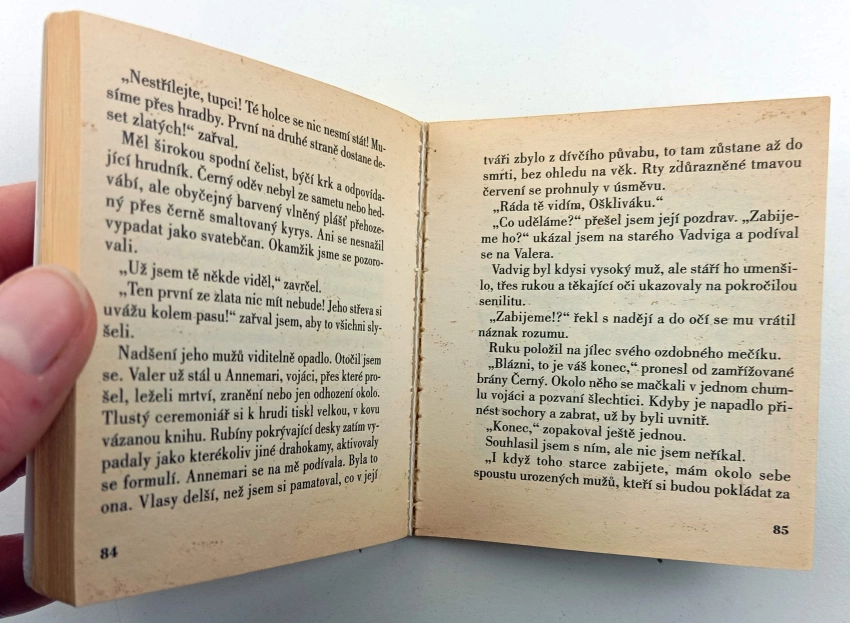 „Nestřílejte, tupci! Té holce se nic nesmí stát! Mu-
síme přes hradby. První na druhé straně dostane de-
set zlatých!“ zařval.
Měl širokou spodní čelist, býčí krk a odpovída-
jící hrudník. Černý oděv nebyl ze sametu nebo hed-
vábí, ale obyčejný barvený vlněný plášť přehoze-
ný přes černě smaltovaný kyrys. Ani se nesnažil
vypadat jako svatebčan. Okamžik jsme se pozoro-
vali.
„Už jsem tě někde viděl,“ zavrčel.
„Ten první ze zlata nic mít nebude! Jeho střeva si
uvážu kolem pasu!“ zařval jsem, aby to všichni sly-
šeli.
Nadšení jeho mužů viditelně opadlo. Otočil jsem
se. Valer už stál u Annemari, vojáci, přes které pro-
šel, leželi mrtví, zranění nebo jen odhození okolo.
Tlustý ceremoniář si k hrudi tiskl velkou, v kovu
vázanou knihu. Rubíny pokrývající desky zatím vy-
padaly jako kterékoliv jiné drahokamy, aktivovaly
se formulí. Annemari se na mě podívala. Byla to
ona. Vlasy delší, než jsem si pamatoval, co v její
84
tváři zbylo z dívčího půvabu, to tam zůstane až do
smrti, bez ohledu na věk. Rty zdůrazněné tmavou
červení se prohnuly v úsměvu.
„Ráda tě vidím, Oškliváku.“
„Co uděláme?“ přešel jsem její pozdrav. „Zabije-
me ho?“ ukázal jsem na starého Vadviga a podíval
se na Valera.
Vadvig byl kdysi vysoký muž, ale stáří ho umenši-
lo, třes rukou a těkající oči ukazovaly na pokročilou
senilitu.
„Zabijeme!?“ řekl s nadějí a do očí se mu vrátil
náznak rozumu.
Ruku položil na jílec svého ozdobného mečíku.
„Blázni, to je váš konec,“ pronesl od zamřížované
brány Černý. Okolo něho se mačkali v jednom chum-
lu vojáci a pozvaní šlechtici. Kdyby je napadlo při-
nést sochory a zabrat, už by byli uvnitř.
„Konec,“ zopakoval ještě jednou.
Souhlasil jsem s ním, ale nic jsem neříkal.
„I když toho starce zabijete, mám okolo sebe
spoustu urozených mužů, kteří si budou pokládat za
85